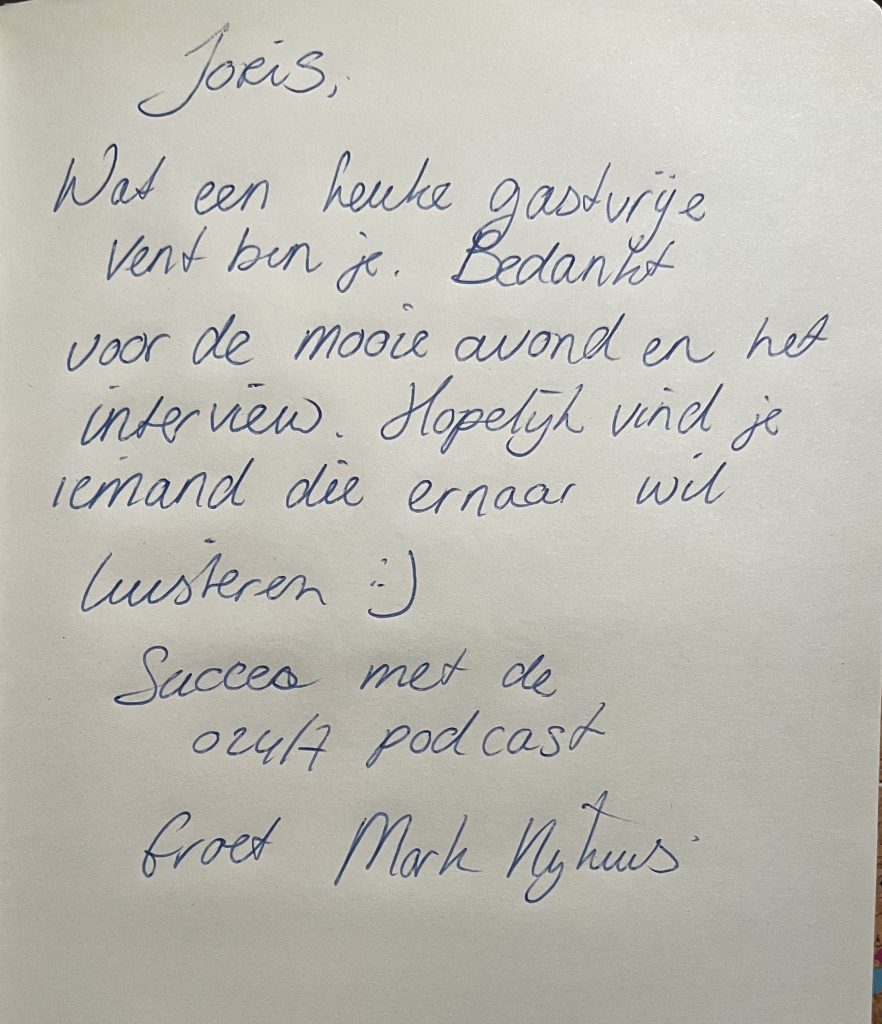 Joris,
Wat een leuke gastvrije
vent ben je. Bedankt
voor de mooie avond en het
interview. Hopelijk vind je
iemand die ernaar wil
luisteren :-)
Succes met de
024/7 podcast
Groet Mark Nijhuis